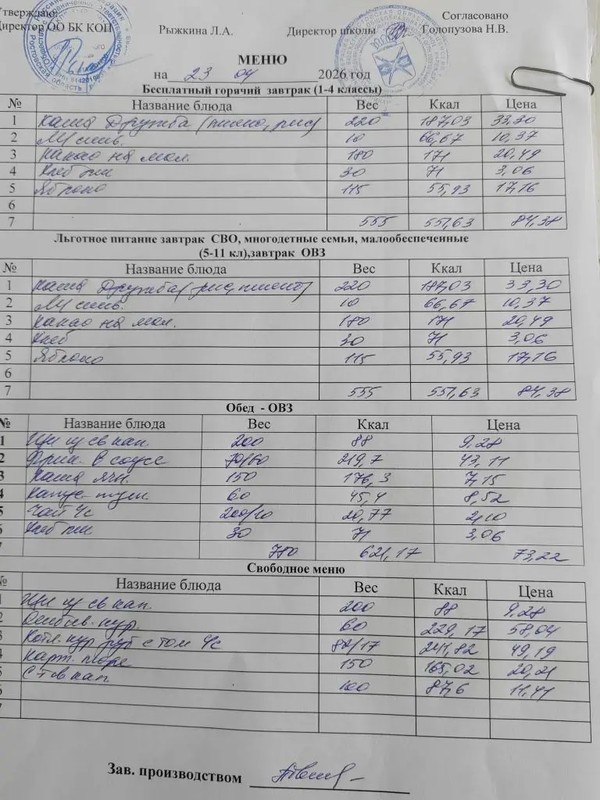 Утверждаю:
Согласовано
Директор ОО БК КОП Рыжкина Л.А. Директор школы Голопузова Н.В.
МЕНЮ
на 23 04 2026 год
Бесплатный горячий завтрак (1-4 классы)
№ Название блюда Вес Ккал Цена
1 Каша Дружба (пшено, рис) 220 187,03 33,30
2 М/слив. 10 66,67 10,37
3 Какао на мол. 180 171 20,49
4 Хлеб пш 30 71 3,06
5 Яблоко 115 55,93 17,16
6
7 555 551,63 84,38
Льготное питание завтрак СВО, многодетные семьи, малообеспеченные
(5-11 кл),завтрак ОВЗ
№ Название блюда Вес Ккал Цена
1 Каша Дружба (рис, пшено) 220 187,03 33,30
2 М/слив. 10 66,67 10,37
3 Какао на мол. 180 171 20,49
4 Хлеб 30 71 3,06
5 Яблоко 115 55,93 17,16
6
7 555 551,63 84,38
Обед - ОВЗ
№ Название блюда Вес Ккал Цена
1 Щи из св кап. 200 88 9,28
2 в соусе 219,7 43,11
3 Каша ячн. 150 176,3 7,15
4 Капус. туш. 60 45,4 8,52
5 Чай 200/10 20,77 2,10
6 Хлеб пш. 30 71 3,06
7 780 621,17 73,22
Свободное меню
№ Название блюда Вес Ккал Цена
1 Щи из св кап. 200 88 9,28
2 кур. 60 229,17 58,04
3 Котл. кур руб с том 80/17 241,82 49,19
4 Карт. пюре 150 165,02 20,21
5 С-т св кап 100 87,6 11,41
6
7
Зав. производством